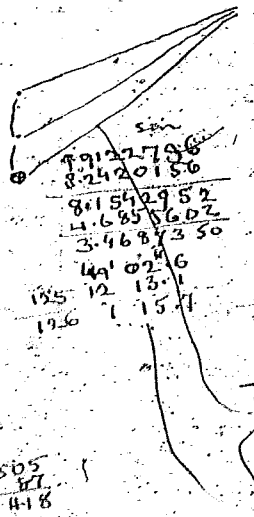 sin
9.9122796
8.2420156
8.1542952
4.6855602
3.4687350
49' 02".6
125 12 13.1
126 1 15.7
505
87
418